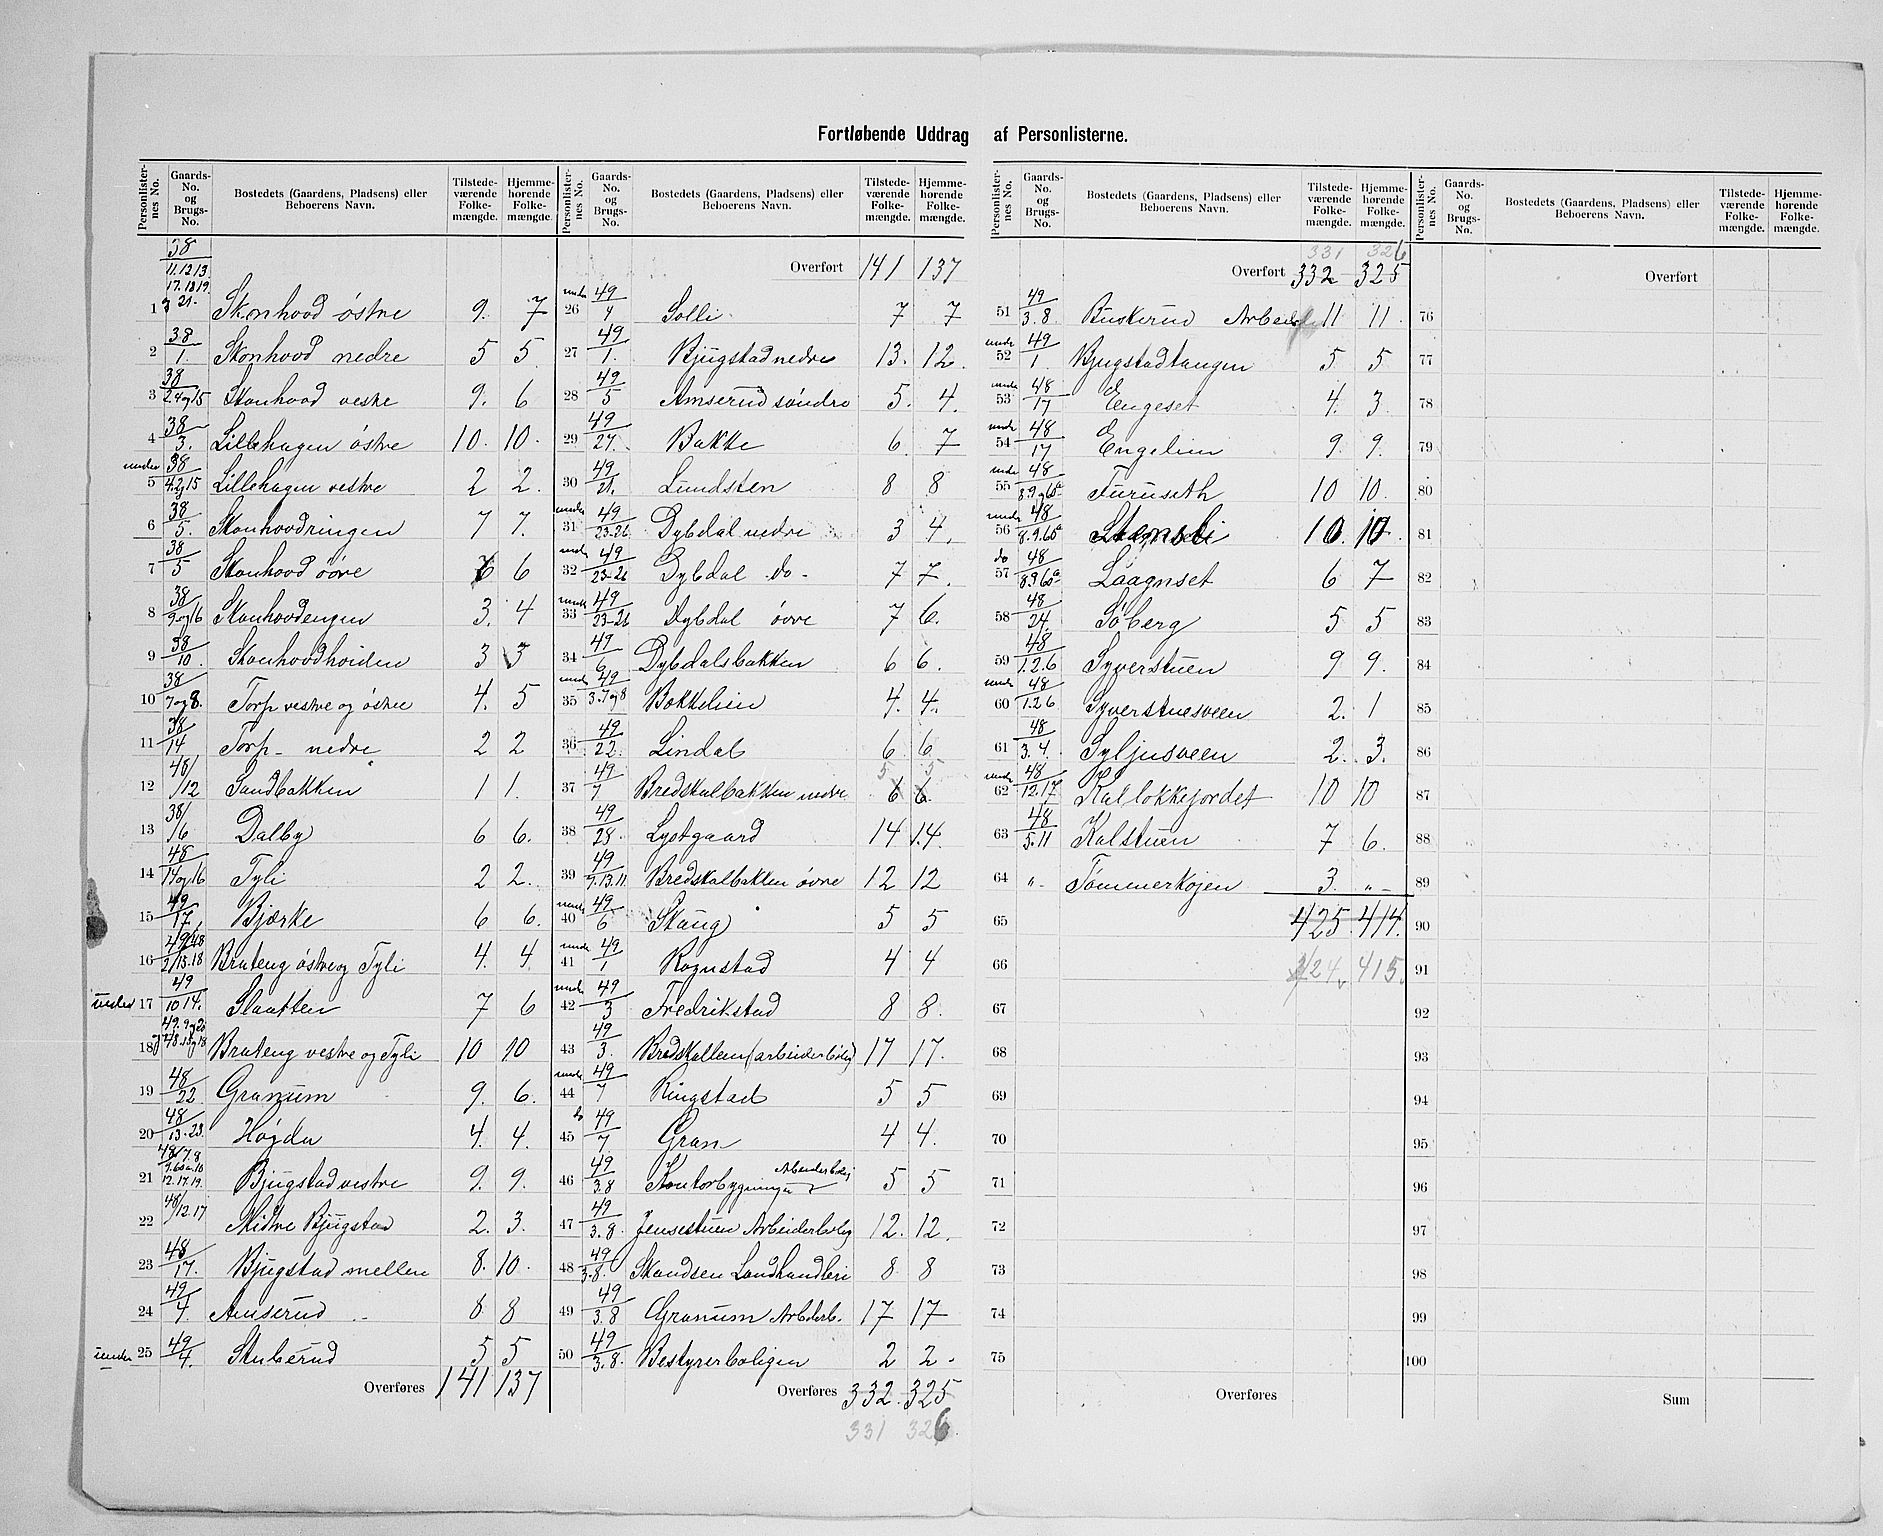 Fortløbende Uddrag af Personlisterne.
Personlisternes No. Gaards-No. og Brugs-No. Bostedets (Gaardens, Pladsens) eller Beboerens Navn. Tilstedeværende Folkemængde. Hjemmehørende Folkemængde.
38/11.12.13 17.18.19. 21.
1 Skonhovd østre 9. 7
2 38/1. Skonhovd nedre 5 5.
3 38/2.4og15 Skonhovd vestre 9. 6
4 38/3. Lillehagen østre 10. 10.
under 5 38/4.2g15 Lillehagen vestre 2 2.
6 38/5. Skonhovdringen 7 7.
7 38/5 Skonhovd övre 6 6
8 38/9og16 Skonhovdengen 3. 4
9 38/10. Skonhovdhoiden 3 3
10 38/7og8. Torp vestre og östre 4. 5
11 38/14 Torp nedre 2 2
12 48/12 Sandbakken 1 1.
13 38/6 Dalby 6 6.
14 48/14og16 Tyli 2 2.
15 49/17. Bjærke 6 6.
16 49/2 48/13.18 Brateng östre og Tyli 4. 4
under 17 49/10 14. Slaatten 7 6
18 49. 9og20 og 48.13og18 Brateng vestre og Tyli 10 10
19 48/22 Granum 9. 6.
20 48/13.23. Høgda 4. 4.
21 48/7.8 9.60a.10 12.17.19. Bjugstad vestre 9. 9.
22 48/12.17 Midtre Bjugstad 2. 3.
23 48/17. Bjugstad mellem 8. 10.
24 49/4. Amserud 8 8
under 25 49/4. Stuberud 5 5
Overføres 141 137
Personlisternes No. Gaards-No. og Brugs-No. Bostedets (Gaardens, Pladsens) eller Beboerens Navn. Tilstedeværende Folkemængde. Hjemmehørende Folkemængde.
Overført 141 137
under 26 49/4 Solli 7 7
27 49/1. Bjugstad nedre 13. 12.
28 49/5 Amserud söndre 5. 4.
29 49/27. Bakke 6. 7
30 49/21. Lundsten 8 8
under 31 49/23-26 Dybdal nedre 3 4.
under 32 49/23-26 Dybdal do - 7 7.
under 33 49/23-26 Dybdal övre 7 6.
34 49/6 Dybdalsbakken 6 6.
under 35 49/3.7og8 Bakkelien 4. 4.
36 49/22. Lindal 6 6
5 5
37 49/7 Bredskalbakken nedre 6 6.
38 49/28. Lystgaard 14 14.
39 49/9.13.11 Bredskalbakken övre 12 12
under 40 49/6 Skaug 5 5
under 41 49/1 Rognstad 4 4
under 42 49/3 Fredrikstad 8 8.
43 49/3. Bredskallen (arbeiderbolig) 17 17.
under 44 49/7 Ringstad 5 5
do 45 49/7 Gran 4 4.
46 49/3.8 Kontorbygningen Arbeiderbolig 5 5
47 49/3.8. Jensestuen Arbeiderbolig 12. 12.
48 49/3.8. Skandsen Landhandleri 8 8
49 49/3.8 Granum Arbderb. 17 17
50 49/3.8. Bestyrerboligen 2 2.
Overføres 332. 325
331 326.
Personlisternes No. Gaards-No. og Brugs-No. Bostedets (Gaardens, Pladsens) eller Beboerens Navn. Tilstedeværende Folkemængde. Hjemmehørende Folkemængde.
331 326
Overført 332 325
51 49/3.8. Buskerud 11 11.
under 52 49/1 Bjugstadtangen 5 5
under 53 48/17 Engeset 4. 3.
under 54 48/17 Engelien 9. 9.
under 55 48/8.9og60a Furuseth 10 10.
under 56 48/8.9.60a 10. 10.
do 57 48/8.9.60a Laagnset 6 7
58 48/24. Söberg 5 5
59 48/1.2.6 Syverstuen 9 9.
under 60 48/1.2.6 Syverstuesveen 2. 1
61 48/3.4. Syljusveen 2. 3.
under 62 48/12.17 Kallokkejordet 10 10
63 48/5.11 Kalstuen 7 6.
64 "- Tömmerkojen 3. "-
65 425. 414.
66 424. 415.
67
68
69
70
71
72
73
74
75
Overføres
Personlisternes No. Gaards-No. og Brugs-No. Bostedets (Gaardens, Pladsens) eller Beboerens Navn. Tilstedeværende Folkemængde. Hjemmehørende Folkemængde.
Overført
76
77
78
79
80
81
82
83
84
85
86
87
88
89
90
91
92
93
94
95
96
97
98
99
100
Sum